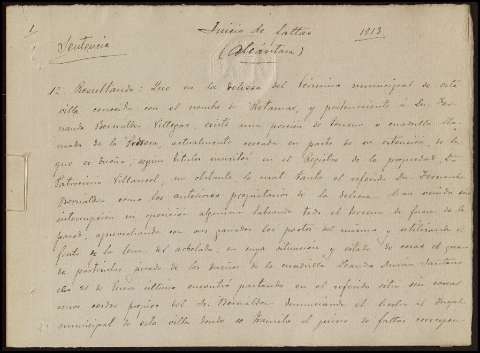 Juicio de faltas 1913
(Alcántara)
Sentencia
1º Resultando: Que en la dehesa del término municipal de esta
villa conocida con el nombre de Retamar, y perteneciente á Dn. Fer-
nando Bernaldez Villegas, existe una porción de terreno ó cuadrilla lla-
mada de la, actualmente cercada en parte de su extensión, de la
que es dueño, según títulos inscritos en el Registro de la propiedad, Dn.
Villarroel, no obstante lo cual tanto el referido Dn. Fernando
Bernaldez como los anteriores propietarios de la dehesa han venido sin
interrupción en posesión alguna todo el terreno de fuera de la
pared, aprovechando con sus ganados los pastos del mismo y utilizando el
fruto de la del arbolado, en cuya situación y estado de cosas el guar-
da particular, jurado de los dueños de la cuadrilla
día 21 de Enero último encontró pastando en el referido sitio
cerdos propios del Sr. Bernaldez denunciando el hecho al Juzgado
municipal de esta villa donde se tramitó el juicio de faltas correspon-